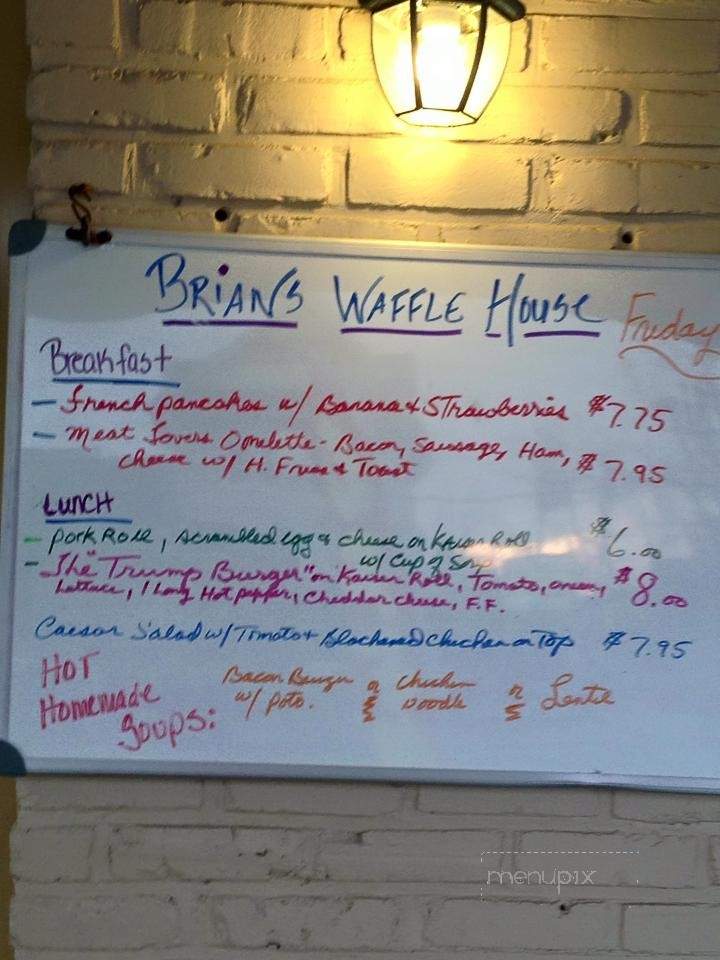 BRIAN'S WAFFLE HOUSE Friday
Breakfast
- French pancakes w/ Banana & STrawberries $7.75
- Meat Lovers Omelette - Bacon, Sausage, Ham, $7.95
cheese w/ H. Fries & Toast
LUNCH
- Pork Roll, scrambled egg & cheese on Kaiser Roll $6.00
w/ Cup of Soup
- The "Trump Burger" on Kaiser Roll, Tomato, onion, $8.00
Lettuce, 1 Long Hot pepper, Cheddar cheese, F.F.
Caesar Salad w/ Tomato & Blackened Chicken on Top $7.95
HOT
Homemade
Soups:
Bacon Burger or Chicken or Lentil
w/ poto. Noodle
menupix